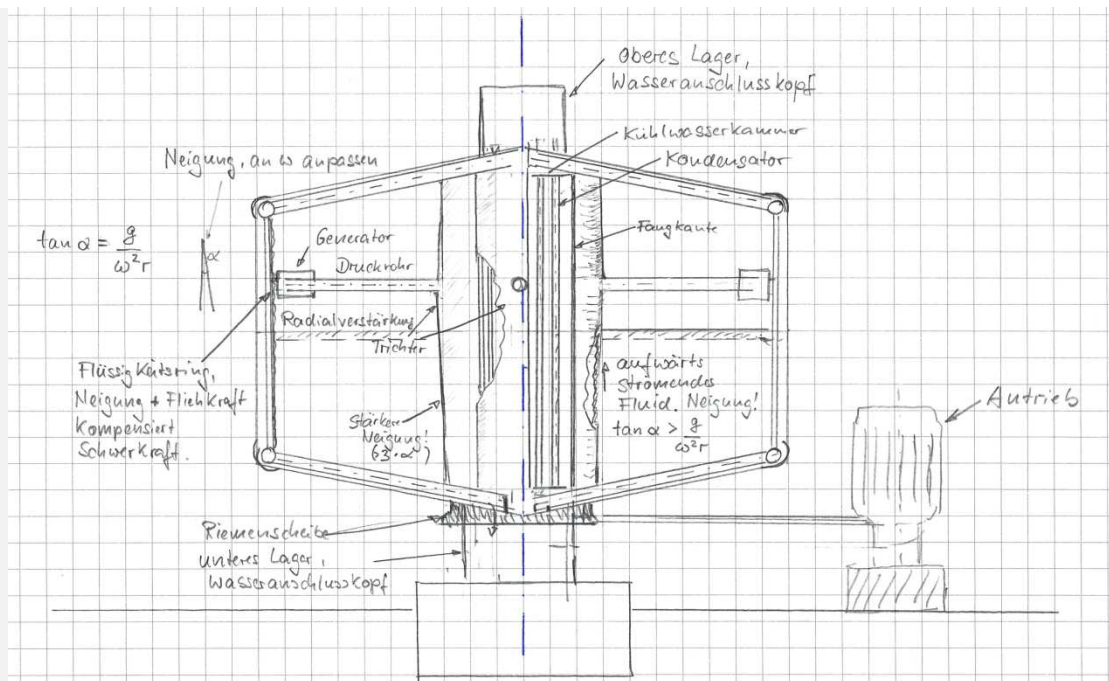 oberes Lager,
Wasseranschlusskopf
Kühlwasserkammer
Kondensator
Neigung, an ω anpassen
tan α = g / ω²r
α
Generator
Druckrohr
Fangkante
Radialverstärkung
Trichter
Flüssigkeitsring,
Neigung + Fliehkraft
Kompensiert
Schwerkraft.
Stärkere
Neigung!
(≈3·α)
aufwärts
strömendes
Fluid. Neigung!
tan α > g / ω²r
Antrieb
Riemenscheibe
unteres Lager,
Wasseranschlusskopf